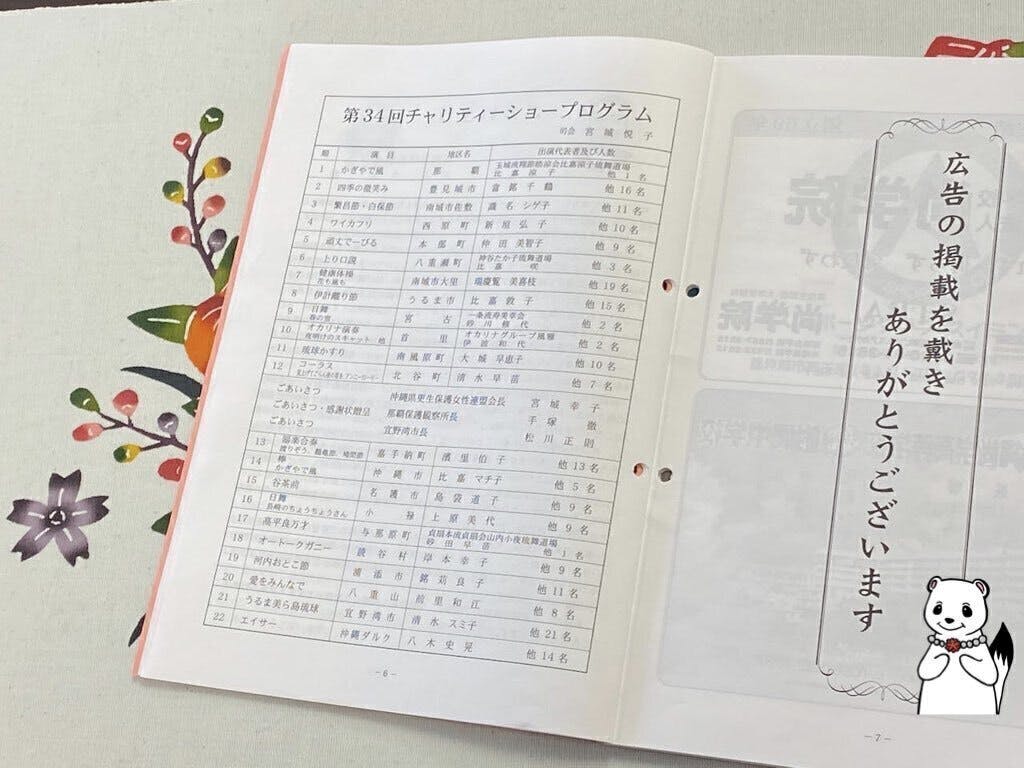 第34回チャリティーショープログラム
司会 宮城悦子
順 演目 地区名 出演代表者及び人数
1 かぎやで風 那覇 比嘉涼子 他 1名
2 四季の微笑み 豊見城市 當銘千鶴 他16名
3 繁昌節・白保節 南城市佐敷 識名シゲ子 他11名
4 ワイカフリ 西原町 新垣弘子 他10名
5 頑丈でーびる 本部町 仲田美智子 他 9名
6 上り口説 八重瀬町 神谷たか子琉舞道場 比嘉咲 他 3名
7 健康体操 南城市大里 瑞慶覧美嘉枝 他19名
8 伊計離り節 うるま市 比嘉敦子 他15名
9 日舞 宮古 一条流寿美章会 砂川雅代 他 2名
10 オカリナ演奏 夜明けのスキャット 他 首里 オカリナグループ風雅 伊波和代 他 2名
11 琉球かすり 南風原町 大城早恵子 他10名
12 コーラス 北谷町 清水早苗 他 7名
ごあいさつ 沖縄県更生保護女性連盟会長 宮城幸子
ごあいさつ・感謝状贈呈 那覇保護観察所長 手塚徹
ごあいさつ 宜野湾市長 松川正則
13 嘉手納町 濱里伯子 他13名
14 かぎやで風 沖縄市 比嘉マチ子 他 5名
15 谷茶前 名護市 島袋道子 他 9名
16 日舞 長崎のちょうちょうさん 小禄 上原美代 他 9名
17 高平良万才 与那原町 貞扇本流貞扇会山内小夜琉舞道場 砂田早苗 他 1名
18 オートークガニー 読谷村 岸本幸子 他 9名
19 河内おとこ節 浦添市 銘苅良子 他11名
20 愛をみんなで 八重山 前里和江 他 8名
21 うるま美ら島琉球 宜野湾市 清水スミ子 他21名
22 エイサー 沖縄ダルク 八木史晃 他14名
－6－
広告の掲載を戴き
ありがとうございます
－7－